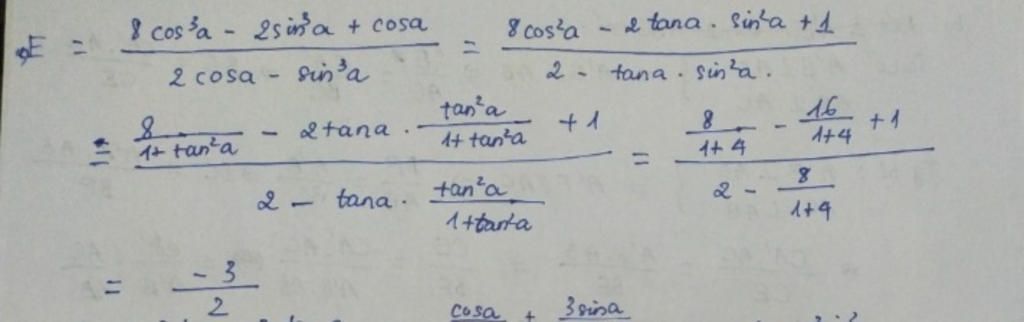 E = \frac{8\cos^3a - 2\sin^3a + \cos a}{2\cos a - \sin^3a} = \frac{8\cos^2a - 2\tan a \cdot \sin^2a + 1}{2 - \tan a \cdot \sin^2a.}
= \frac{\frac{8}{1+\tan^2a} - 2\tan a \cdot \frac{\tan^2a}{1+\tan^2a} + 1}{2 - \tan a \cdot \frac{\tan^2a}{1+\tan^2a}} = \frac{\frac{8}{1+4} - \frac{16}{1+4} + 1}{2 - \frac{8}{1+4}}
= \frac{-3}{2}
\frac{\cos a}{} + \frac{3\sin a}{}